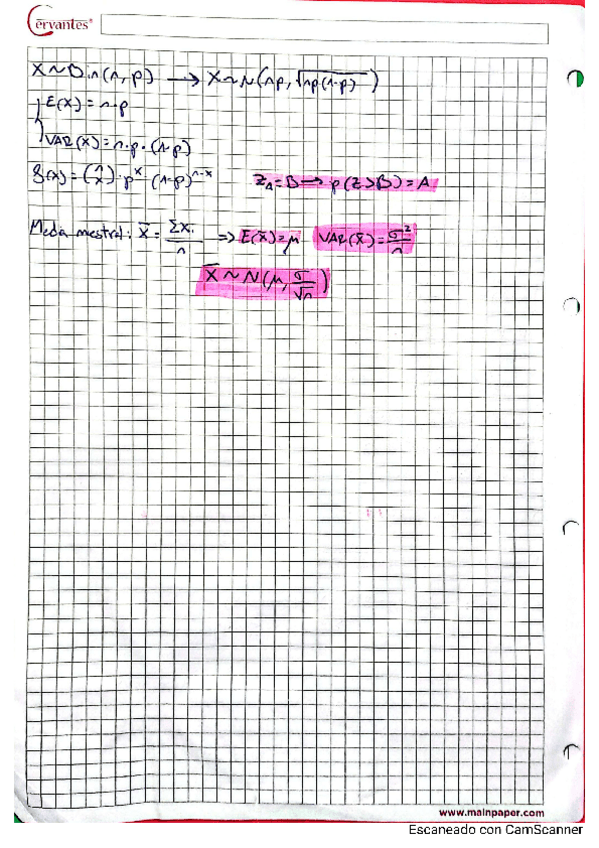 Cervantes
X~Bin(n,p) → X~N(np, √np(1-p))
E(X) = n·p
VAR(X) = n·p·(1-p)
f(x) = (n x)·p^x·(1-p)^n-x Z_A = B → p(Z>B) = A
Media mestral: X̄ = ΣXi/n ⇒ E(x̄)=μ VAR(x̄) = σ²/n
X̄ ~ N(μ, σ/√n)
www.mainpaper.com
Escaneado con CamScanner